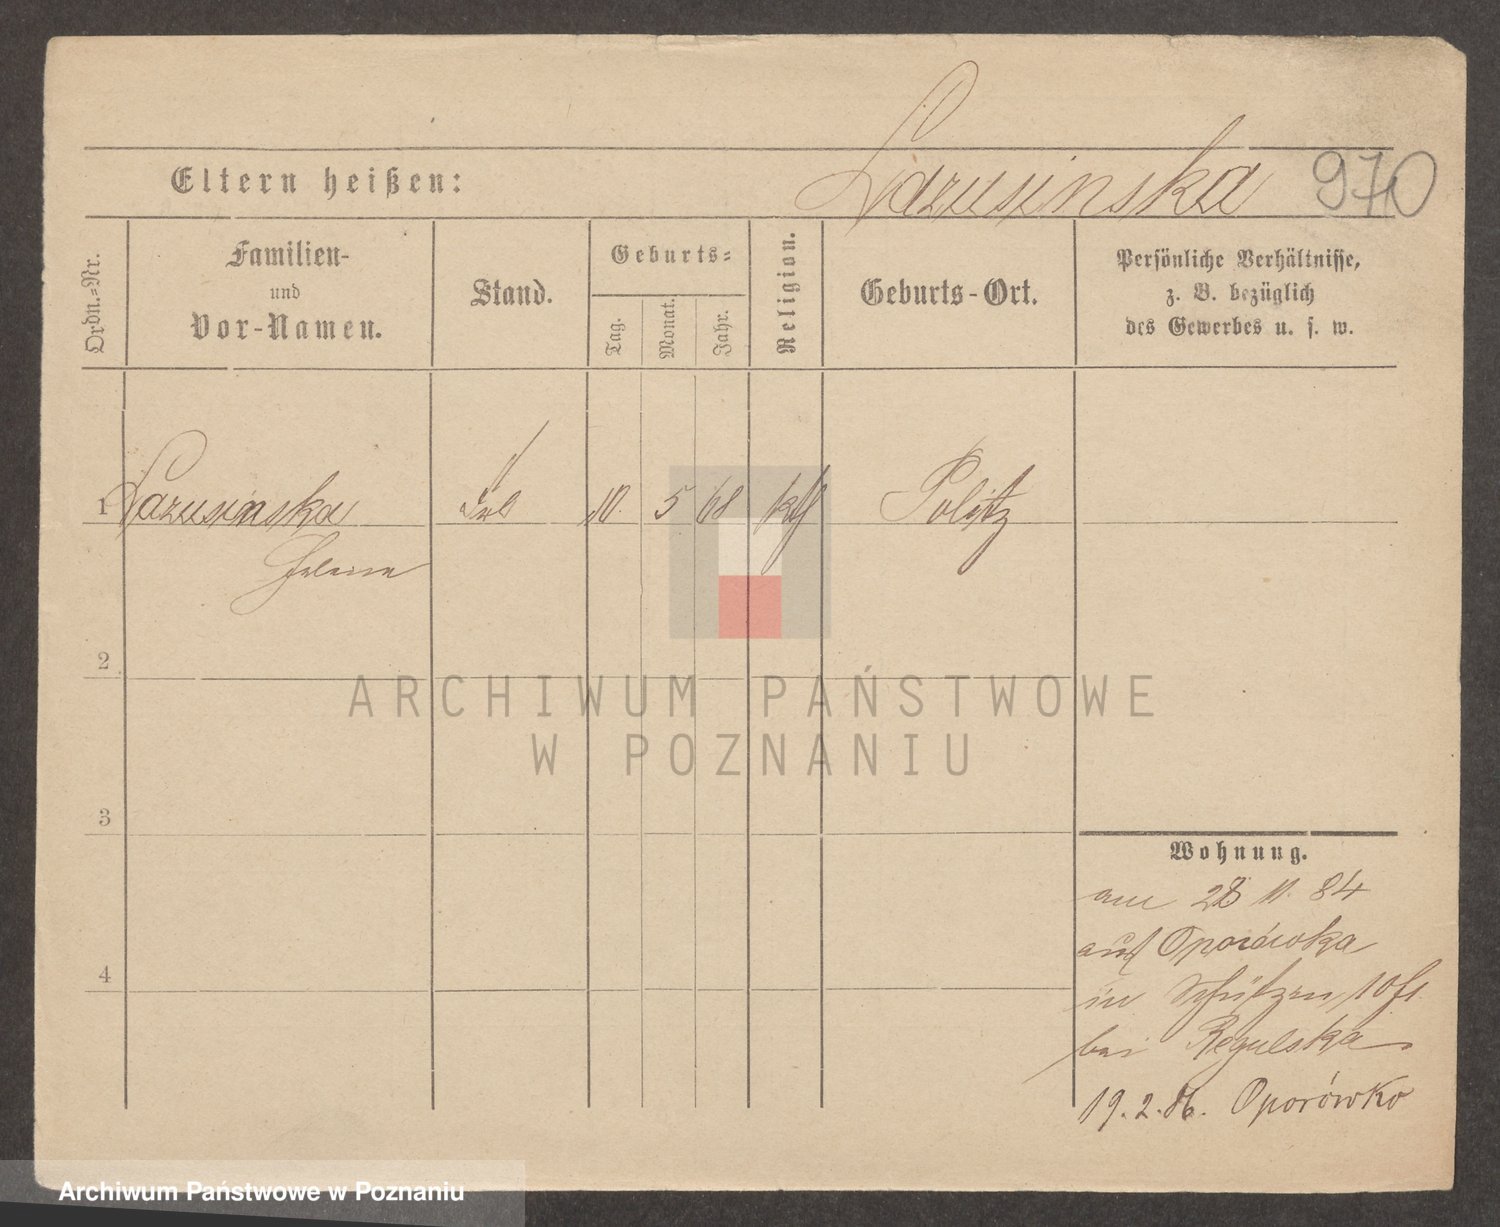 Eltern heißen:
Lazusinska 970
Ordn.=Nr.
Familien-
und
Vor-Namen.
Stand.
Geburts=
Tag.
Monat.
Jahr.
Religion.
Geburts-Ort.
Persönliche Verhältnisse,
z. B. bezüglich
des Gewerbes u. s. w.
1 Lazusinska 10. 5 68 kth Politz
Helena
2
ARCHIWUM PAŃSTWOWE
W POZNANIU
3
Wohnung.
am 28 11. 84
auf Oporówka
4
in Schützen 10
bei Regulska
19. 2. 86. Oporówko
Archiwum Państwowe w Poznaniu